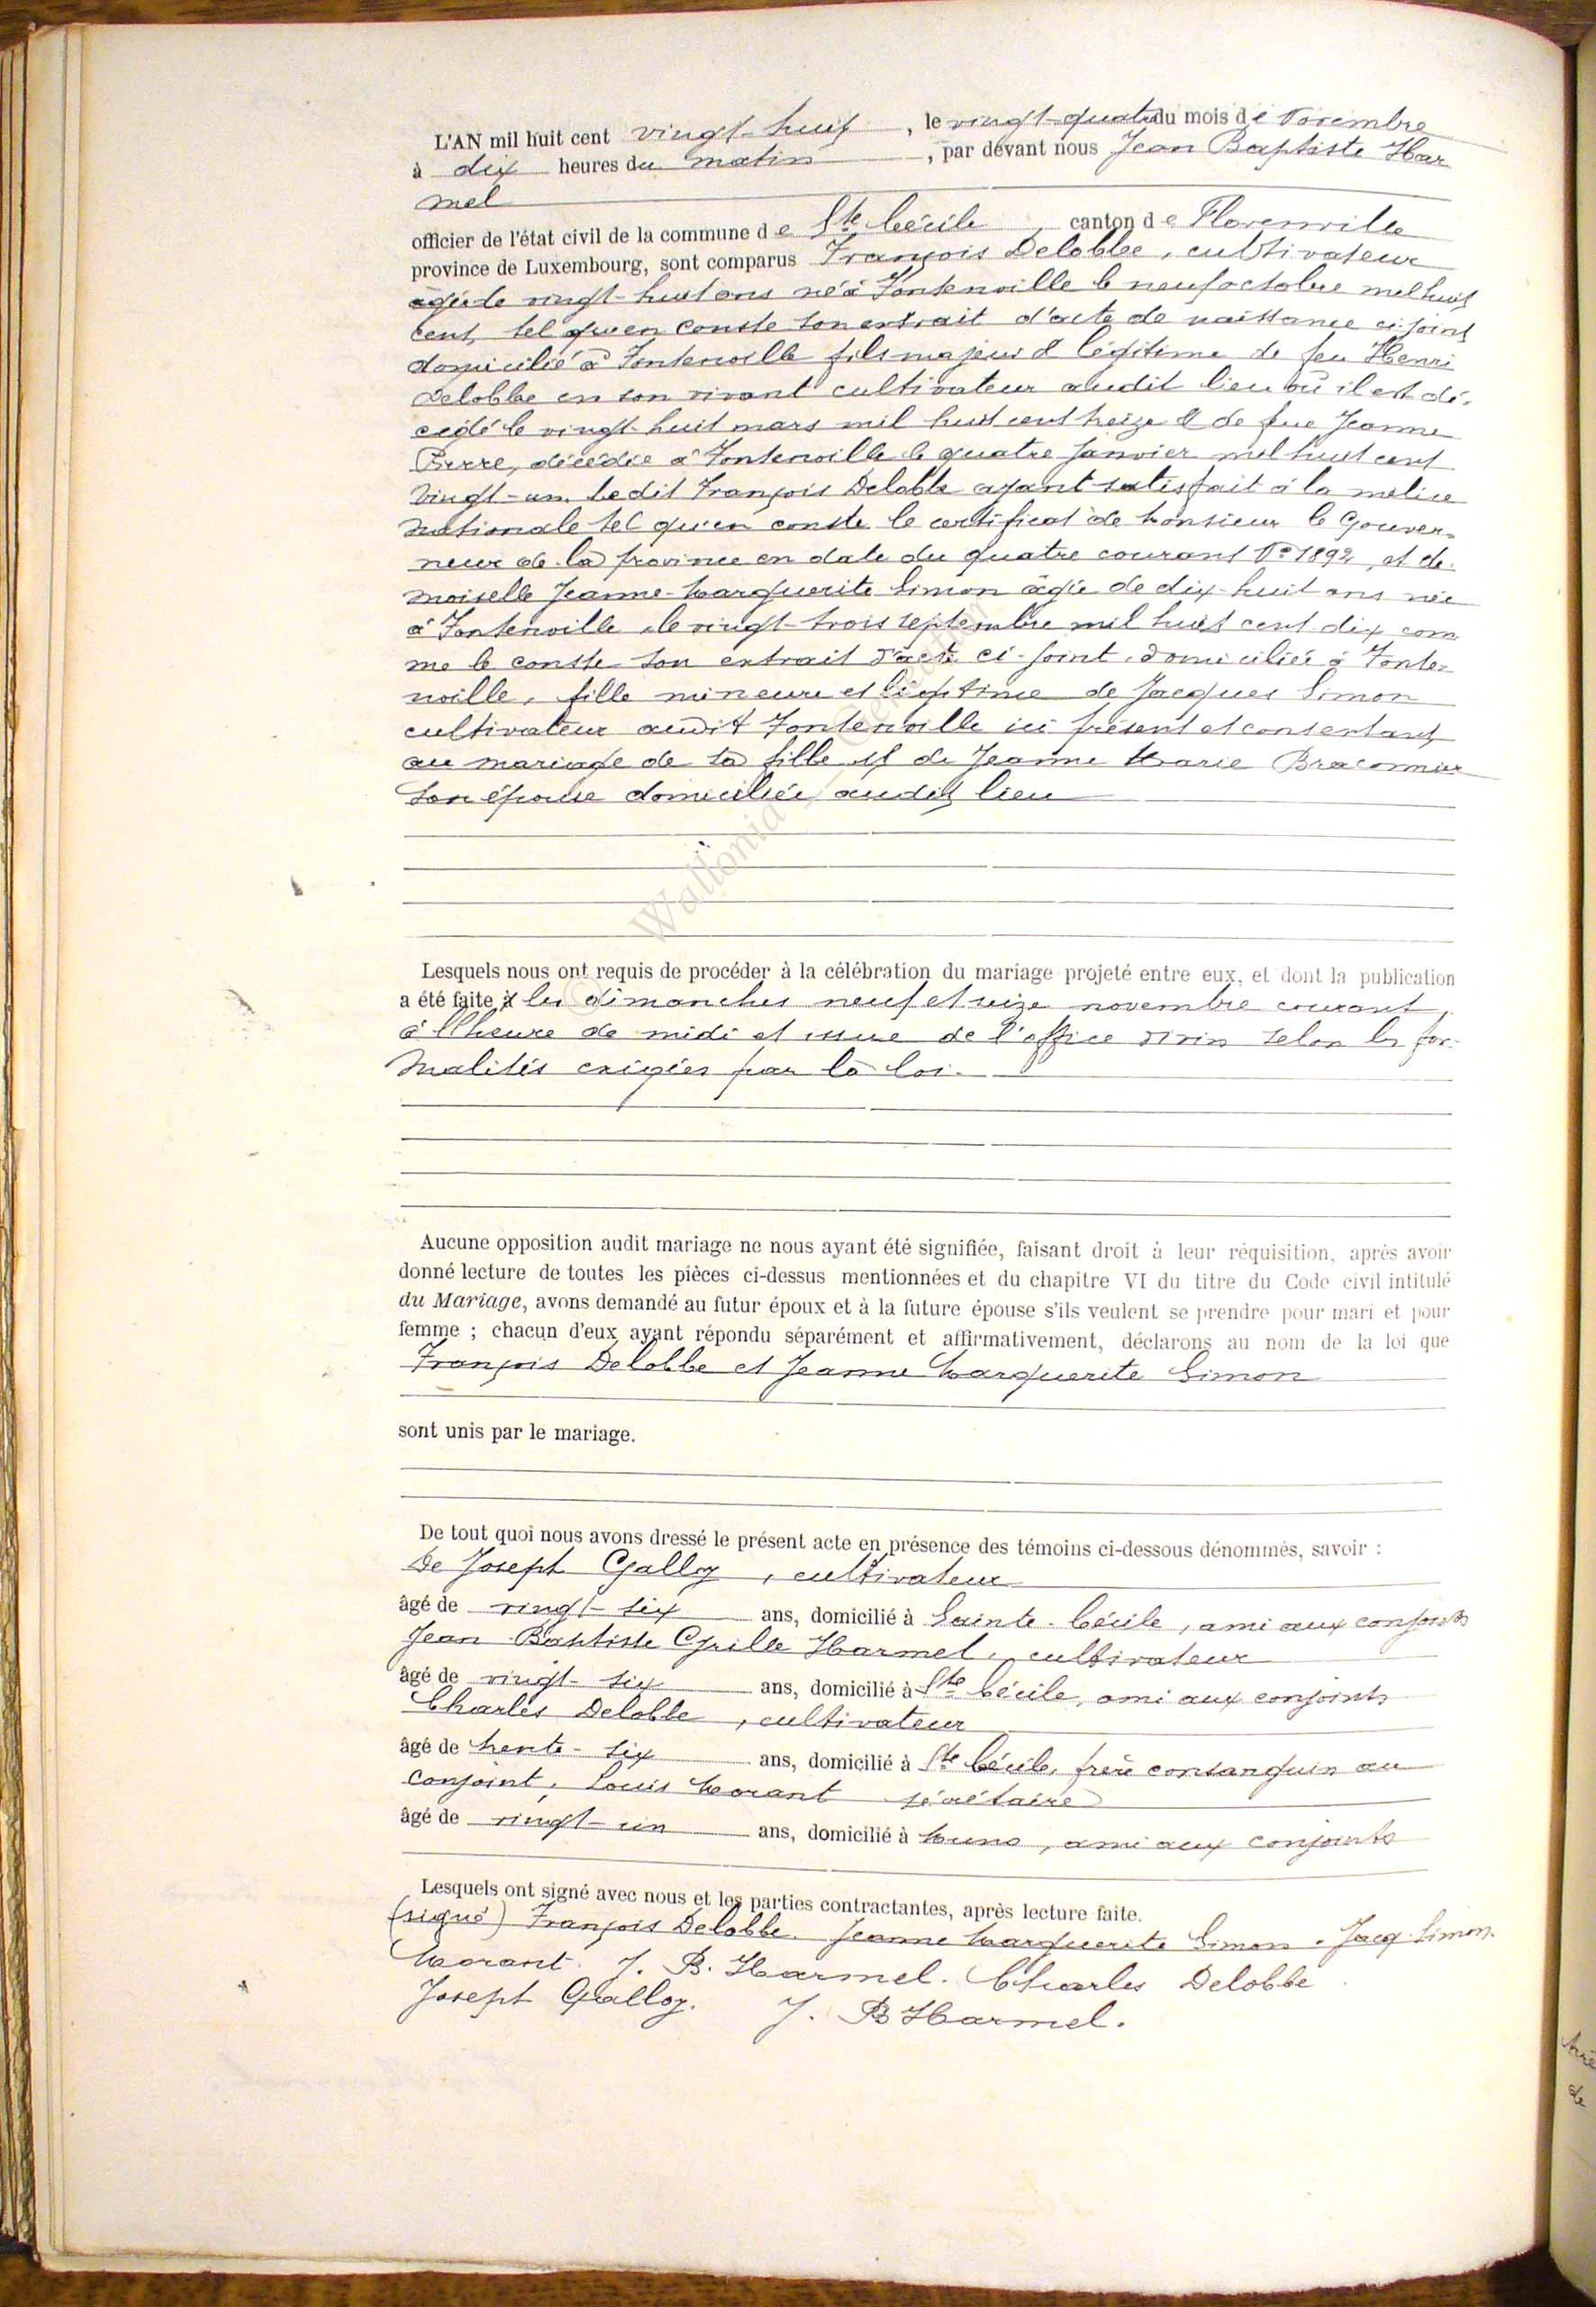 L'AN mil huit cent vingt-huit, le vingt-quatre du mois de Novembre
à dix heures du matin, par devant nous Jean Baptiste Har
mel
officier de l'état civil de la commune de Ste Cécile, canton de Florenville
province de Luxembourg, sont comparus François Delobbe, cultivateur
âgé de vingt-huit ans né à Fontenoille le neuf octobre mil huit
cent, tel qu'en conste son extrait d'acte de naissance ci-joint
domicilié à Fontenoille fils majeur & légitime de feu Henri
Delobbe en son vivant cultivateur audit lieu où il est dé-
cédé le vingt-huit mars mil huit cent treize & de feue Jeanne
décédée à Fontenoille le quatre janvier mil huit cent
vingt-un. Ledit François Delobbe ayant satisfait à la milice
nationale tel qu'en conste le certificat de Monsieur le Gouver-
neur de la province en date du quatre courant No 1892, et de-
moiselle Jeanne-Marguerite Simon âgée de dix-huit ans née
à Fontenoille, le vingt-trois septembre mil huit cent dix com
me le conste son extrait d'acte ci-joint, domiciliée à Fonte-
noille, fille mineure et légitime de Jacques Simon
cultivateur audit Fontenoille ici présent et consentant
au mariage de sa fille, et de Jeanne Marie Braconnier
son épouse domiciliée audit lieu
© Wallonia - Généalogie
Lesquels nous ont requis de procéder à la célébration du mariage projeté entre eux, et dont la publication
a été faite à les dimanches neuf et seize novembre courant,
à l'heure de midi et issue de l'office divin selon les for-
malités exigées par la loi.
Aucune opposition audit mariage ne nous ayant été signifiée, faisant droit à leur réquisition, après avoir
donné lecture de toutes les pièces ci-dessus mentionnées et du chapitre VI du titre du Code civil intitulé
du Mariage, avons demandé au futur époux et à la future épouse s'ils veulent se prendre pour mari et pour
femme ; chacun d'eux ayant répondu séparément et affirmativement, déclarons au nom de la loi que
François Delobbe et Jeanne Marguerite Simon
sont unis par le mariage.
De tout quoi nous avons dressé le présent acte en présence des témoins ci-dessous dénommés, savoir :
De Joseph Galloy, cultivateur
âgé de vingt-six ans, domicilié à Sainte-Cécile, ami aux conjoints
Jean Baptiste Grille Harmel, cultivateur
âgé de vingt-six ans, domicilié à Ste Cécile, ami aux conjoints
Charles Delobbe, cultivateur
âgé de trente-six ans, domicilié à Ste Cécile, frère consanguin au
conjoint, Louis Morant secrétaire
âgé de vingt-un ans, domicilié à Muno, ami aux conjoints
Lesquels ont signé avec nous et les parties contractantes, après lecture faite.
(signé) François Delobbe. Jeanne Marguerite Simon. Jacq. Simon.
Morant. J. B. Harmel. Charles Delobbe
Joseph Galloy. J. B Harmel.
de